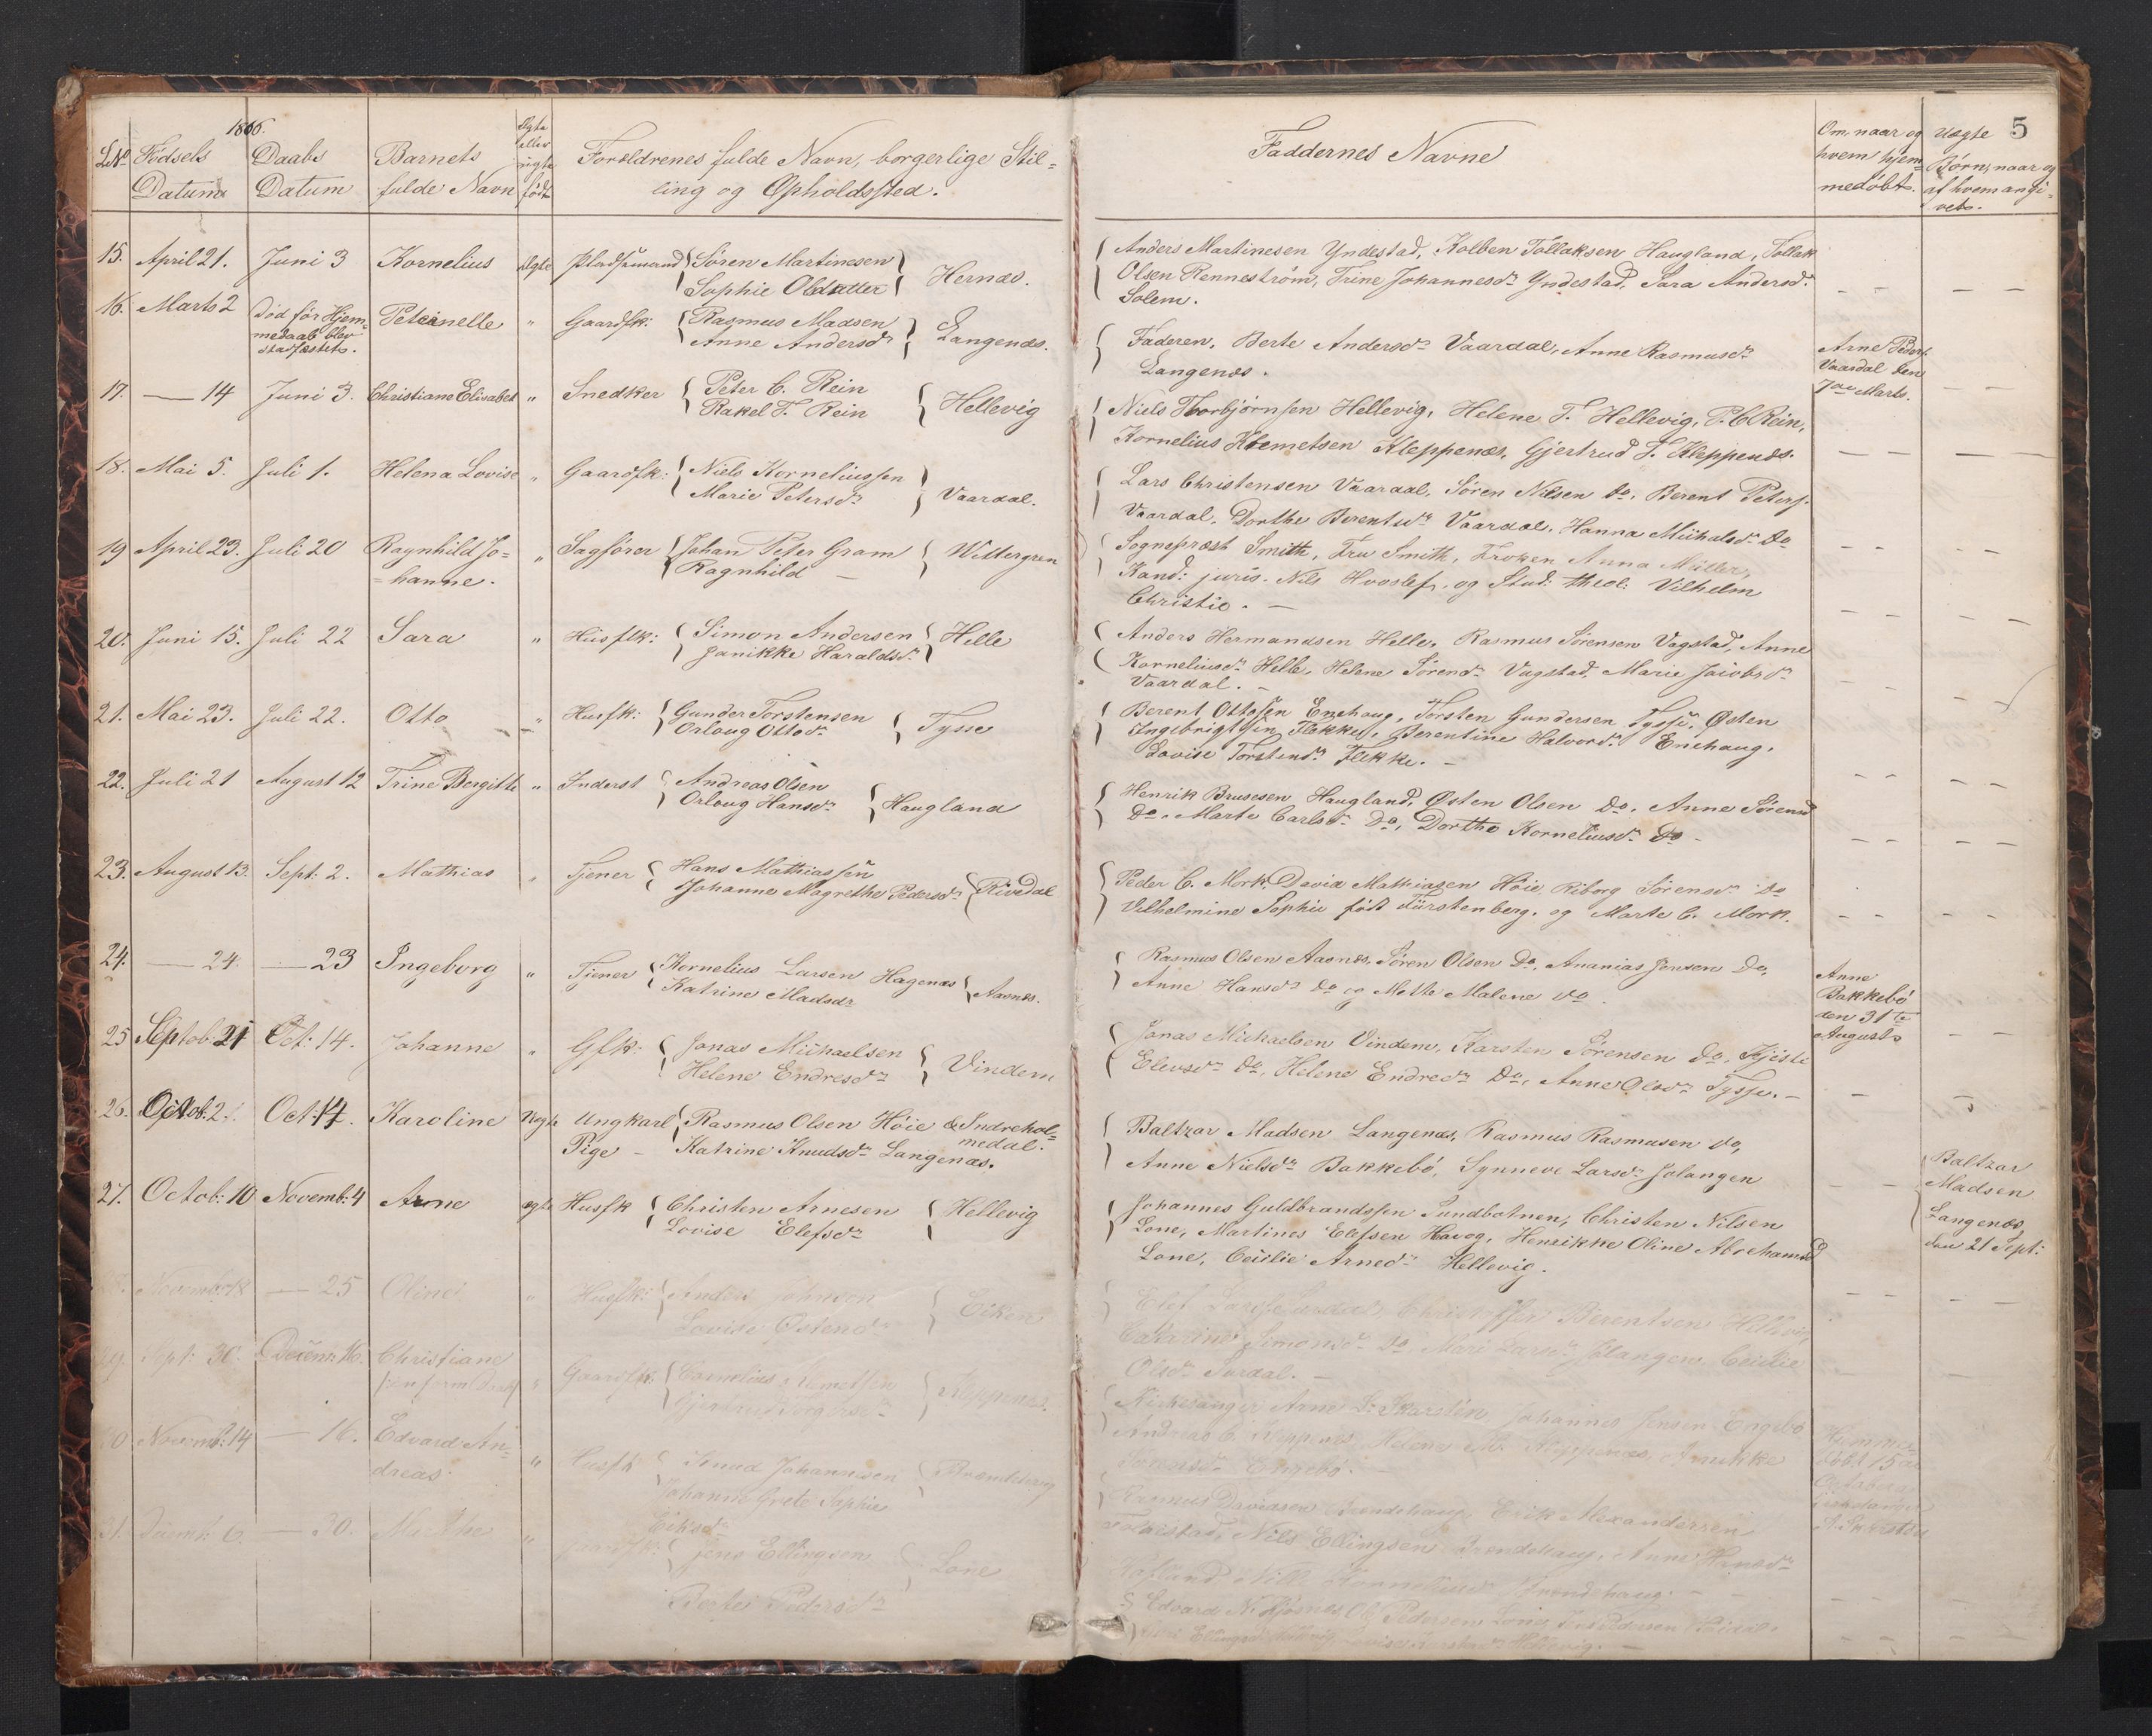 1866.
LNo Fødsels Datum
Daabs Datum
Barnets fulde Navn
Ægte eller uægte født
Forældrenes fulde Navn, borgerlige Stil-
ling og Opholdssted.
Faddernes Navne
Om, naar og hvem hjem-
medøbt.
Uægte Børn, naar og
af hvem angi-
vet.
5
15. April 21. Juni 3 Kornelius Ægte Pladsmand Søren Martinesen Hernæs.
Sophie Olsdatter
Anders Martinesen Yndestad, Kolben Tollaksen Haugland, Tollak
Olsen Rennestrøm, Trine Johannesdr Yndestad, Sara Andersdr
Solem.
16. Marts 2 død før Hjem-
medaab blev
stadfæstet.
Petrinelle " Gaardfk: Rasmus Madsen Langenæs.
Anne Andersdr
Faderen, Berte Andersdr Vaardal, Anne Rasmusdr
Langenæs.
Arne Peders.
Vaardal den
Marts.
17. — 14 Juni 3. Christiane Elisabet " Snedker Peter C. Rein Hellevig
Rakel T. Rein
Niels Thorbjørnsen Hellevig, Helene T. Hellevig, P. C. Rein,
Kornelius Klemetsen Kleppenæs, Gjertrud T. Kleppenæs.
18. Mai 5. Juli 1. Helena Lovise " Gaardfk: Niels Korneliussen Vaardal.
Marie Petersdr
Lars Christensen Vaardal, Søren Nilsen Do, Berent Peters.
Vaardal, Dorthe Berentsdr Vaardal, Hanna Mikalsdr Do
19 April 23. Juli 20 Ragnhild Jo-
hanne. " Sagfører Johan Peter Gram Wittergren
Ragnhild —
Sognepræst Smith, Fru Smith, Frøken Anna Müller,
Kand: juris. Nils Hvoslef, og Stud: theol: Vilhelm
Christie. —
20. Juni 15. Juli 22 Sara " Husflk: Simon Andersen Helle
Janikke Haraldsdr
Anders Hermandsen Helle, Rasmus Sørensen Vagstad, Anne
Korneliusdr Helle, Helene Sørendr Vagstad, Marie Jacobsdr
Vaardal. —
21. Mai 23. Juli 22. Otto " Husfk: Gunder Torstensen Tysse
Orloug Ottodr
Berent Ottosen Enehaug, Torsten Gundersen Tysse, Østen
Ingebrigtsen Flekke, Berentine Halvordr Enehaug,
Lovise Torstendr Flekke. —
22. Juli 21 August 12 Trine Bergitte " Inderst Andreas Olsen Haugland
Orloug Hansdr
Henrik Brusesen Haugland, Østen Olsen Do, Anne Sørensd
Do, Marte Carlsdr Do, Dorthe Korneliusdr Do -
23. August 13. Sept: 2. Mathias " Tjener Hans Mathiassen Rivedal
Johanne Magrethe Pedersdr
Peder C. Mork, David Mathiasen Høie, Riborg Sørensdr Do
Vilhelmine Sophie født Fürstenberg, og Marte C. Mork.
24. — 24. — 23 Ingeborg " Tjener Kornelius Larsen Hagenæs Aasnæs.
Katrine Madsdr
Rasmus Olsen Aasnæs, Søren Olsen Do, Ananias Jensen Do,
Anne Hansdr Do og Mette Malene Do.
Anne
Bakkebø
den 31te
August
25 Septob: 21 Oct: 14. Johanne " Gfk: Jonas Mikhaelsen Vindem
Helene Endresdr
Jonas Michaelsen Vindem, Karsten Sørensen Do, Kjersti
Elevsdr Do, Helene Endredr Do, Anne Olsdr Tysse. —
26. Octob: 2. Oct: 14 Karoline Uægte Ungkarl Rasmus Olsen Høie & Indrehol-
medal.
Pige - Katrine Knudsdr Langenæs.
Baltzar Madsen Langenæs, Rasmus Rasmusen Do,
Anne Nielsdr Bakkebø, Synneve Larsdr Jølangen
Baltzar
Madsen
Langenæs,
den 21 Sept:
27. Octob: 10 Novemb: 4 Arne ægte Husfk Christen Arnesen Hellevig
Lovise Elefsdr
Johannes Guldbrandssen Sundbotnen, Christen Nilsen
Lone, Martines Elefsen Havog, Henrikke Oline Abrahamsd
Lone, Cecilie Arnedr Hellevig.
28. Novemb: 18 — 25 Oline " Husfk: Anders Johnson Eiken
Lovise Østendr
Elef Berentsen Hellevig
Simonsdr Do, Mari Larsdr Jølangen, Cecilie
Olsdr
29 Sept: 30. Decem: 16. Christiane " Gaardfk: Cornelius Klemetsen Kleppenæs.
Kirkesanger Arne D. Skarsten, Johannes Jensen Engebø
Andreas C. Kleppenæs, Helene M. Kleppenæs, Janikke
Engebø.
Hjemme-
døbt 15de
October
Kirkesanger
A. Skarsten
30 Novemb: 14 — 16. Edvard An-
dreas. " Husfk Knud Johannesen
Johanne Grete Sophie
Eriksdr
Rasmus Davidsen Erik Alexandersen
Nils Ellingsen Anne Hansdr
31. Decemb: 6. — 30. Marthe " Gaardfk: Jens Ellingsen Lone
Berthe Pedersdr
Edvard N. Ole Pedersen Lone, Pedersen
Hellevig. —